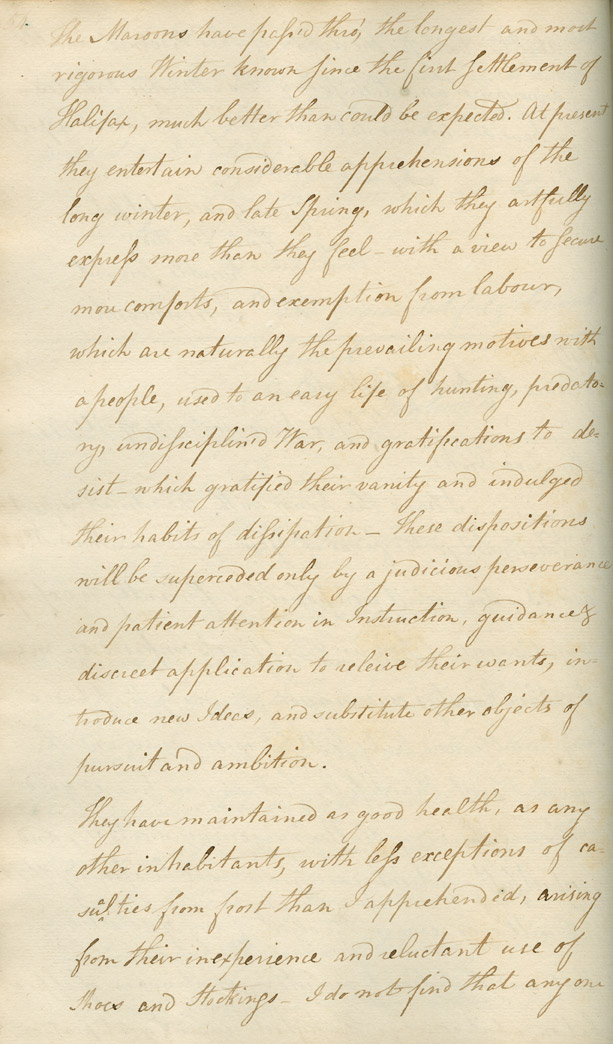 The Maroons have pass'd thro', the longest and most
rigorous Winter known since the first settlement of
Halifax, much better than could be expected. At present
they entertain considerable apprehensions of the
long winter, and late Spring, which they artfully
express more than they feel - with a view to secure
more comforts, and exemption from labour,
which are naturally the prevailing motives with
a people, used to an easy life of hunting, predato=
ry, undisciplin'd War, and gratifications to de=
sist - which gratified their vanity and indulged
their habits of dissipation - These dispositions
will be superceded only by a judicious perseverance
and patient attention in Instruction, guidance &
discreet application to releive their wants, in=
troduce new Ideas, and substitute other objects of
pursuit and ambition.
They have maintained as good health, as any
other inhabitants, with less exceptions of ca=
sualties from frost than I apprehended, arising
from their inexperience and reluctant use of
Shoes and Stockings - I do not find that any one